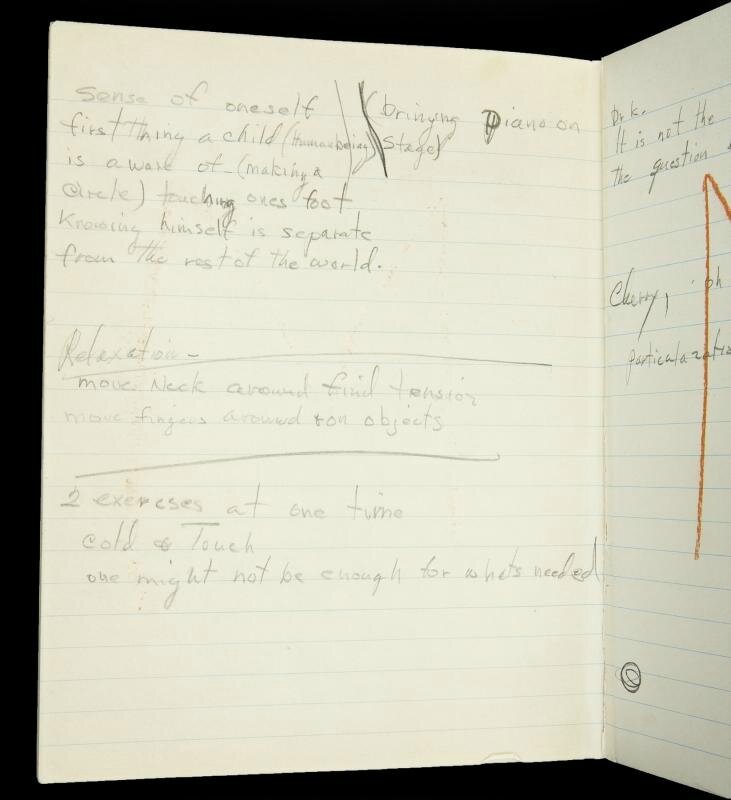 Sense of oneself (bringing Piano on
first thing a child (Human being) Stage)
is aware of - (making a
circle) touching ones foot
Knowing himself is separate
from the rest of the world.
Relaxation -
move Neck around find tension
move fingers around + on objects
2 exercses at one time
cold & Touch
one might not be enough for whats needed
Dr K.
It is not the
the question
Cherry, oh
particularazatio